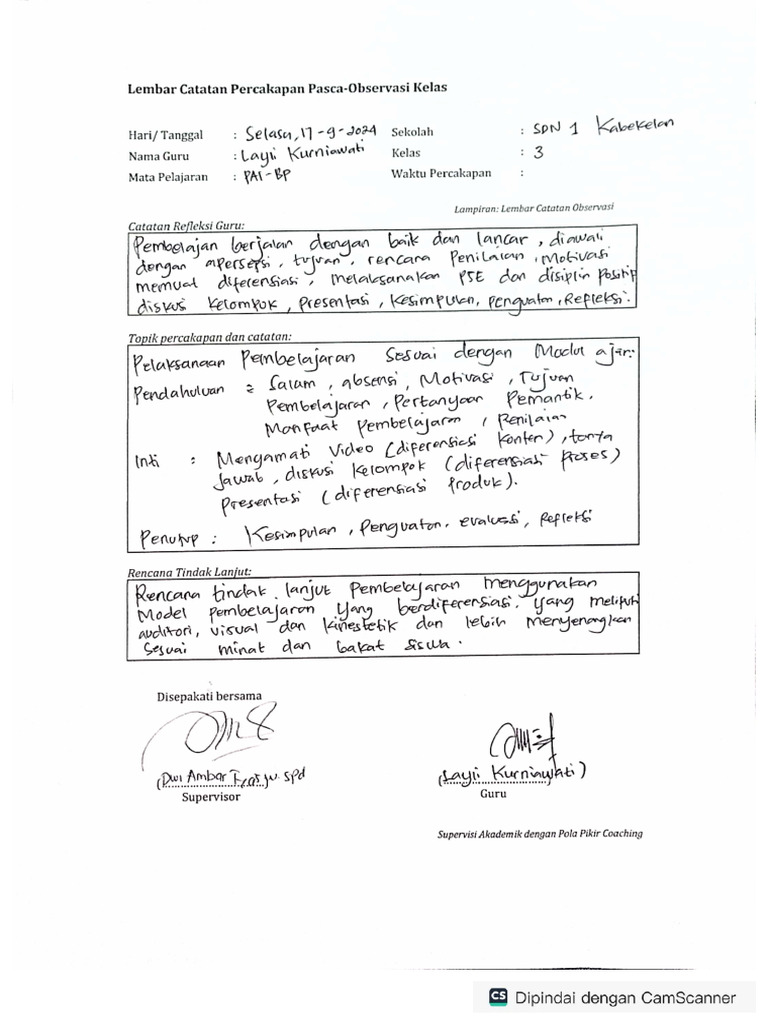 Lembar Catatan Percakapan Pasca-Observasi Kelas
Hari/ Tanggal : Selasa, 17-9-2024 Sekolah : SDN 1 Kabekelan
Nama Guru : Layli Kurniawati Kelas : 3
Mata Pelajaran : PAI-BP Waktu Percakapan :
Lampiran: Lembar Catatan Observasi
Catatan Refleksi Guru:
Pembelajaran berjalan dengan baik dan lancar, diawali
dengan apersepsi, tujuan, rencana Penilaian, Motivasi
memuat diferensiasi, melaksanakan PSE dan disiplin positif
diskusi kelompok, presentasi, kesimpulan, penguatan, Refleksi.
Topik percakapan dan catatan:
Pelaksanaan Pembelajaran Sesuai dengan Modul ajar:
Pendahuluan = Salam, absensi, Motivasi, Tujuan
Pembelajaran, Pertanyaan Pemantik,
Manfaat pembelajaran, Penilaian
Inti : Mengamati Video (diferensiasi konten), tanya
jawab, diskusi kelompok (diferensiasi proses)
Presentasi (diferensiasi Produk).
Penutup : Kesimpulan, Penguatan, evaluasi, Refleksi
Rencana Tindak Lanjut:
Rencana tindak lanjut Pembelajaran menggunakan
Model pembelajaran yang berdiferensiasi, yang meliputi
auditori, visual dan kinestetik dan lebih menyenangkan
sesuai minat dan bakat siswa.
Disepakati bersama
(Dwi Ambar SPd (Layli Kurniawati)
Supervisor Guru
Supervisi Akademik dengan Pola Pikir Coaching
CS Dipindai dengan CamScanner